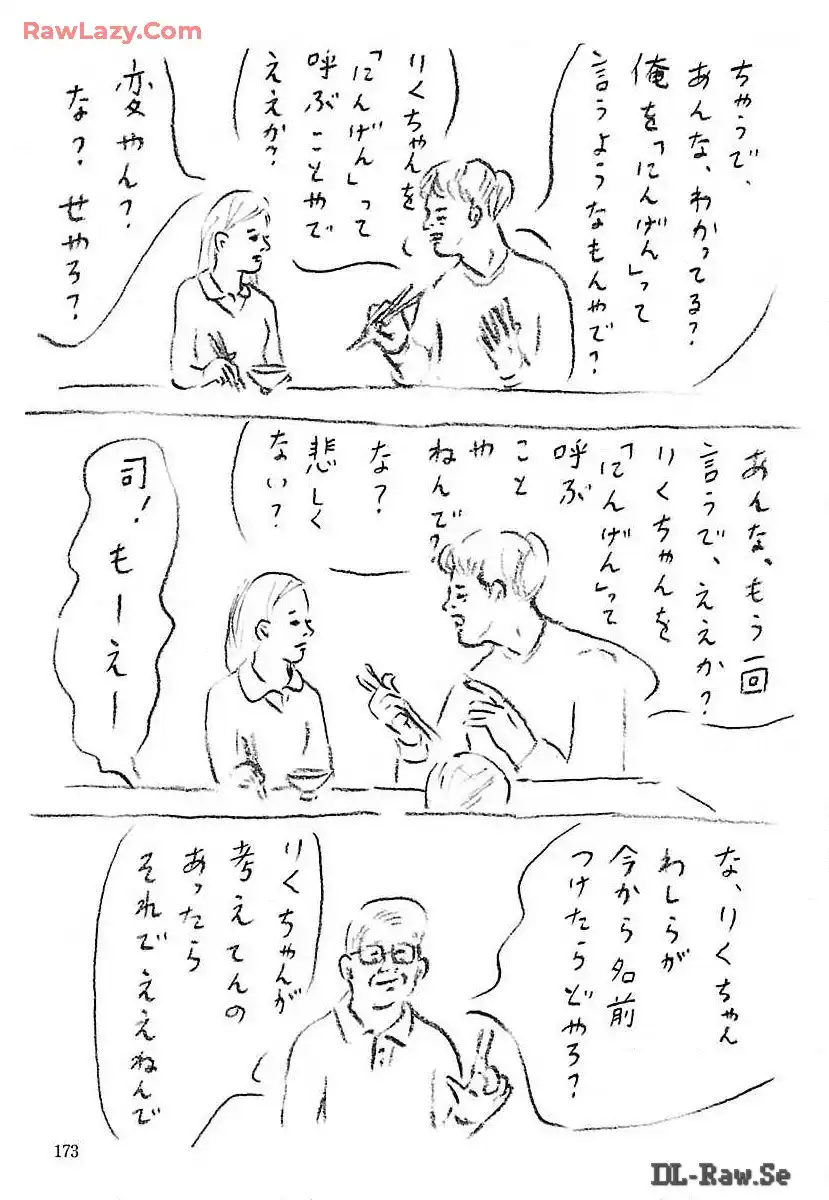 RawLazy.Com
ちゃうで、
あんな、わかってる?
俺を「にんげん」って
言うようなもんやで?
りくちゃんを
「にんげん」って
呼ぶことやで
ええか?
変やん?
な?せやろ?
あんな、もう一回
言うで、ええか?
りくちゃんを
「にんげん」って
呼ぶ
こと
や
ねんで?
な?
悲しく
ない?
司!もーえー
な、りくちゃん
わしらが
今から名前
つけたらどやろ?
りくちゃんが
考えてんの
あったら
それでええねんで
173
DL-Raw.Se